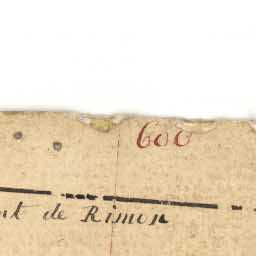 600
nt de Rimon